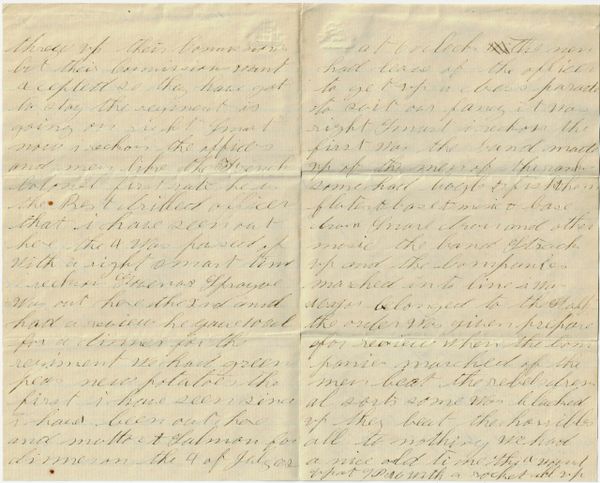 threw up their Commissions
but their Commissions wont
acepted so they have got
to stay the regiment is
going on right smart
now i reckon the officers
and men like the French
Colonel first rate he is
the Best drilled officer
that i have seen out
here the 4 was passed of
With a right smart time
i reckon Sprague
was out here the 2nd and
had a review he gave
for a dinner for the
regiment We had green
peas new potatoes the
first i have seen since
i have been out here
and mutton & Salmon for
dinner on the 4 of July
at 6 oclock the men
had leave of the officers
to get up a parade
to suit our fancy it was
right smart i reckon the
first was the band made
up of the men of the
some had bugle &
flute & base & base
drum Snare drum and other
music the band struck
up and the Companies
marched in to line
belonged to the
the order was given prepare
for review when the com
panies marched of the
men beat the rebel dress
al sorts some was blacked
up they beat the horribles
all to nothing we had
a nice old time
with a rocket up